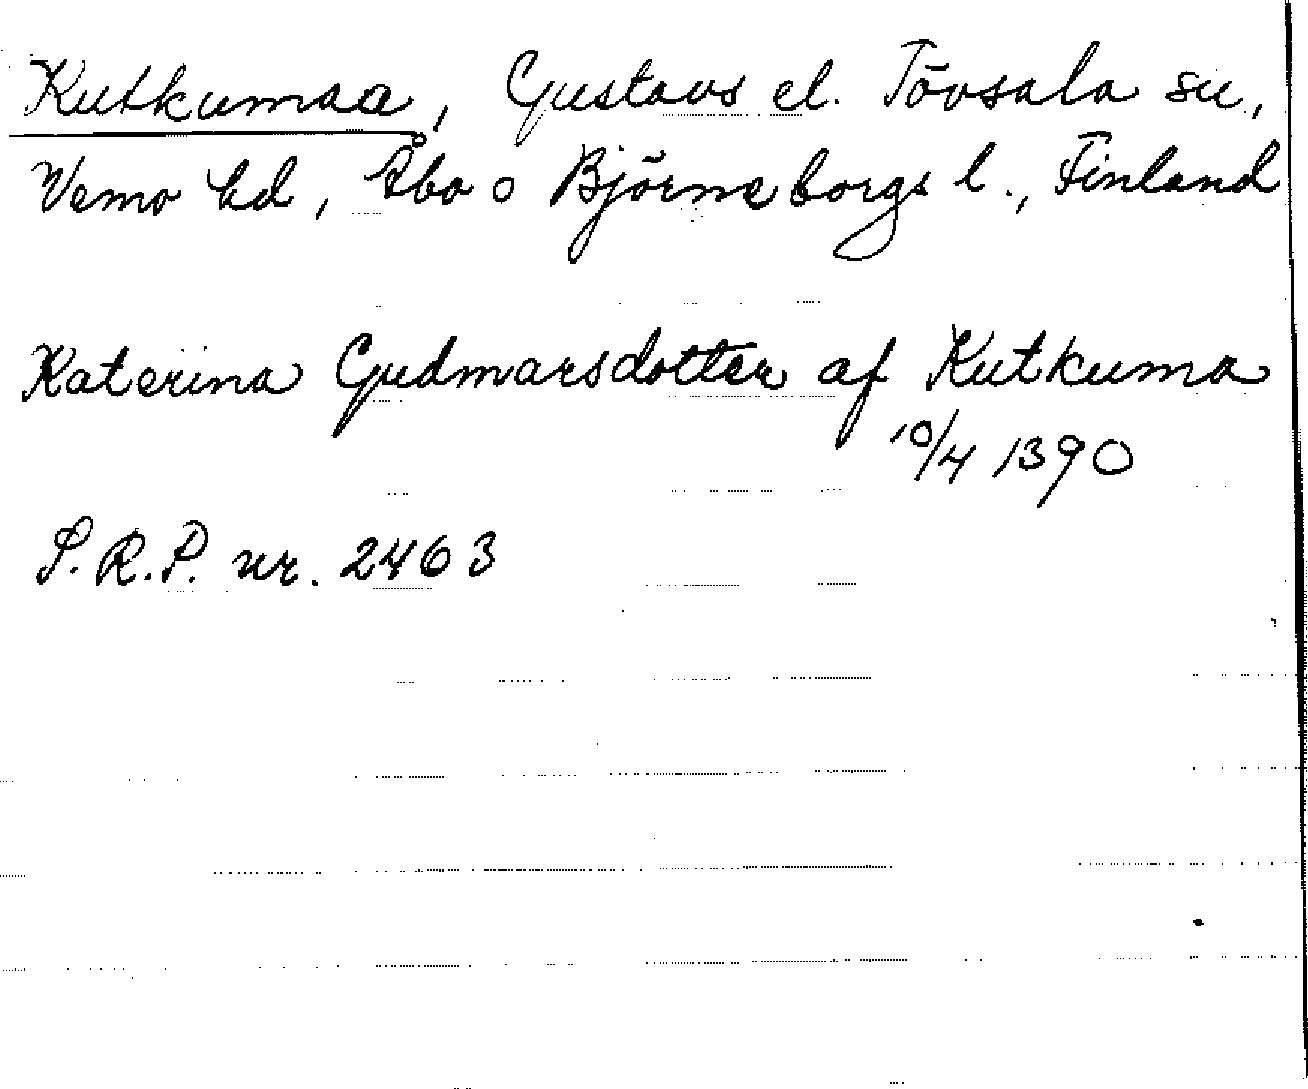 Kutkumaa, Gustavs el. Tövsala su,
Vemo hd, Åbo o Björneborgs l., Finland
Katerina Gudmarsdotter af Kutkuma
10/4 1390
S.R.P. nr. 2463